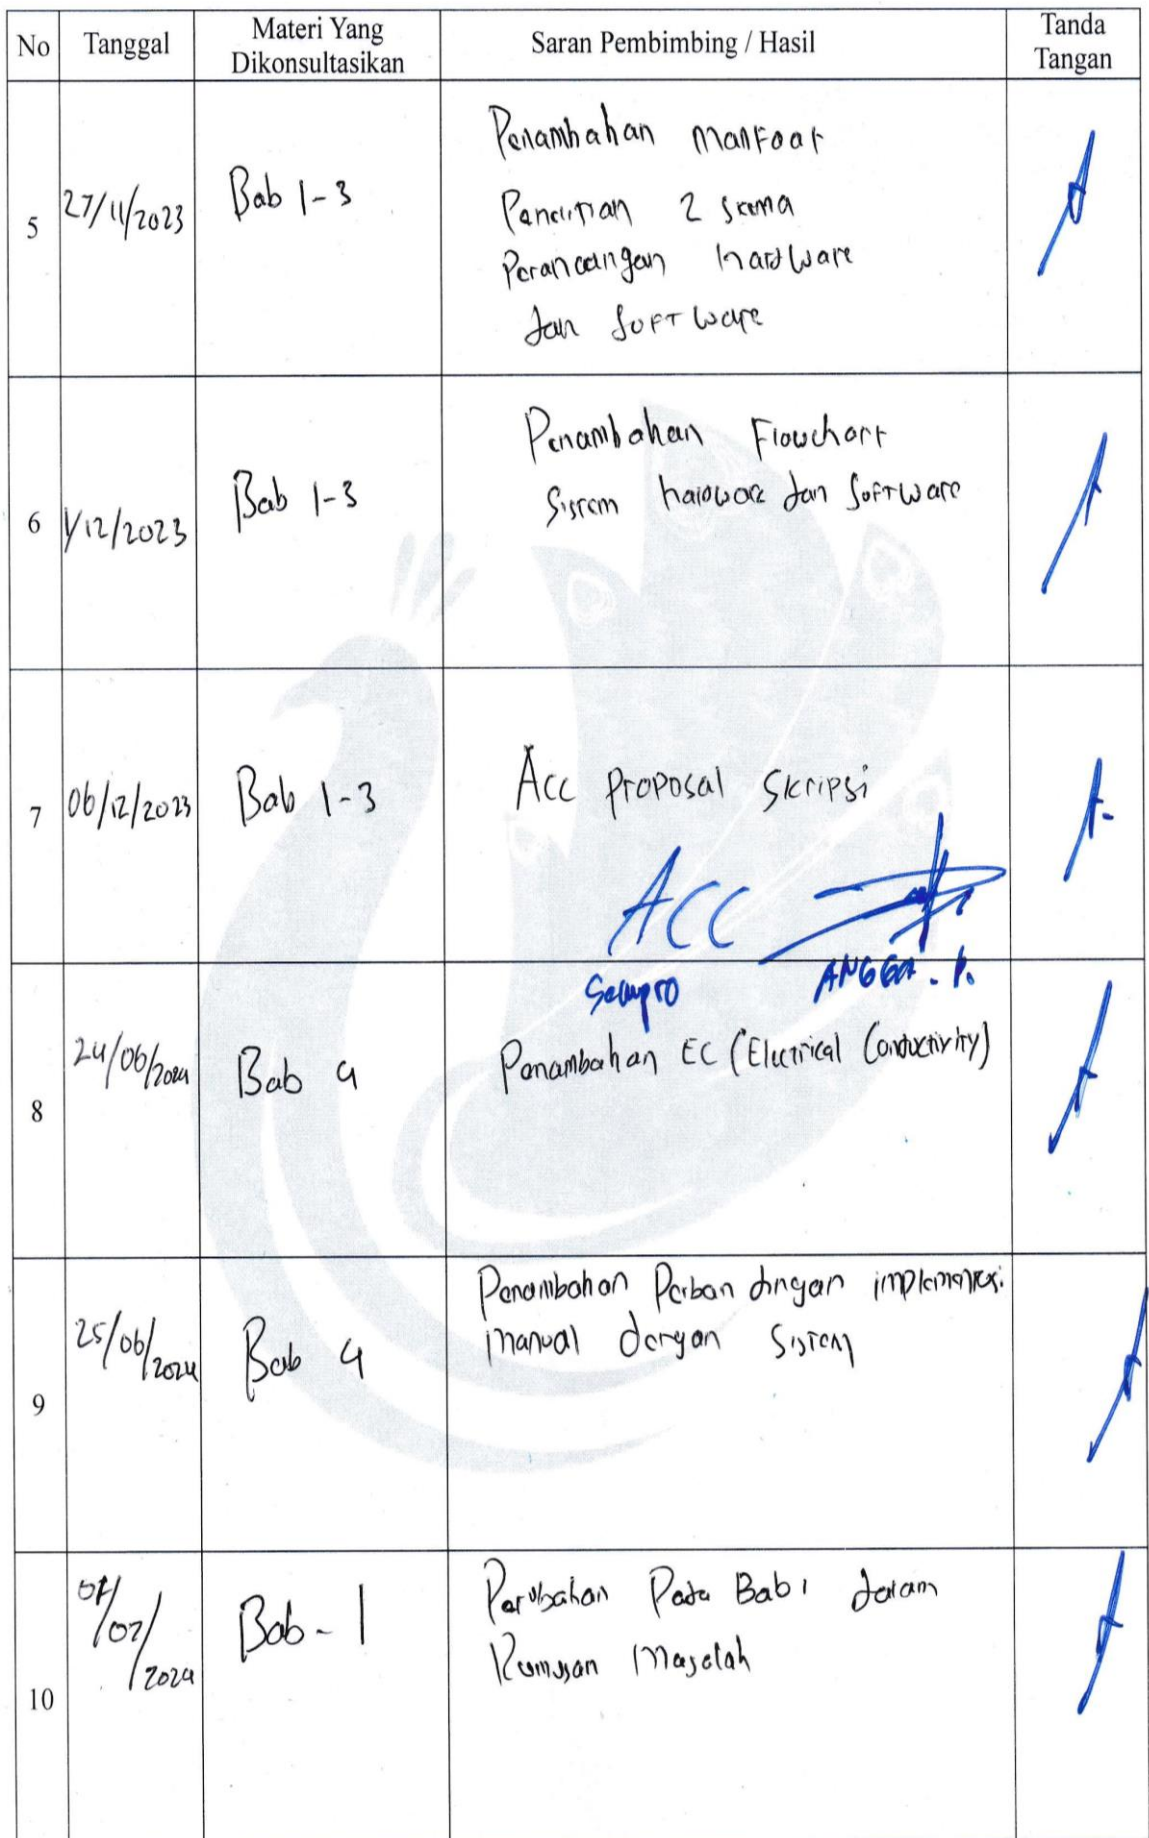 No Tanggal Materi Yang Dikonsultasikan Saran Pembimbing / Hasil Tanda Tangan
5 27/11/2023 Bab 1-3 Penambahan Manfaat
Penelitian 2 skema
Perancangan hardware
dan software
6 1/12/2023 Bab 1-3 Penambahan Flowchart
Sistem hardware dan Software
7 06/12/2023 Bab 1-3 Acc Proposal Skripsi
ACC
Sempro ANGGA . P.
8 24/06/2024 Bab 4 Penambahan EC (Electrical Conductivity)
9 25/06/2024 Bab 4 Penambahan Perbandingan implementasi
manual dengan Sistem
10 /07/2024 Bab - 1 Perubahan Pada Bab 1 dalam
Rumusan Masalah